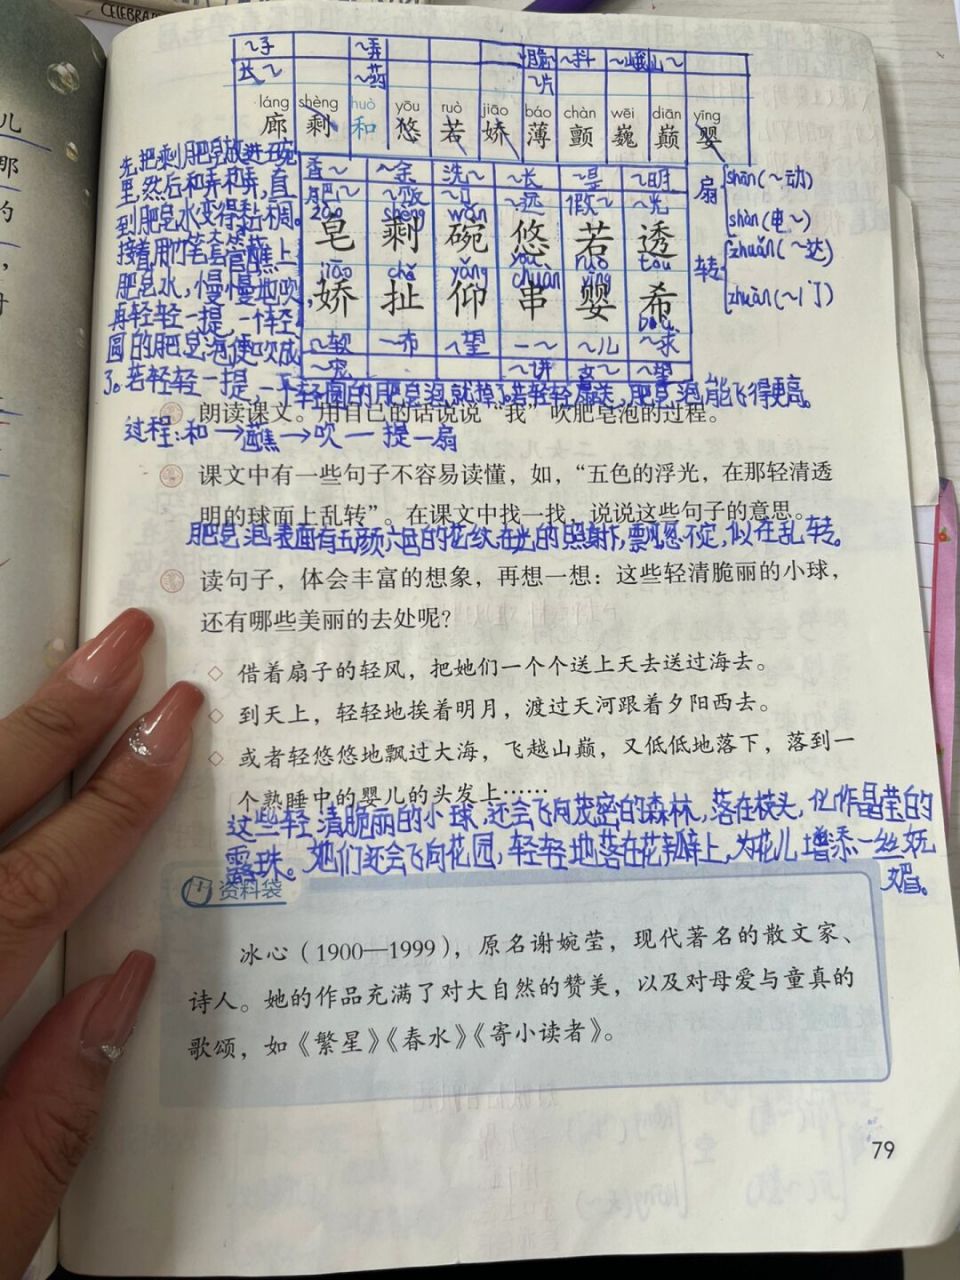 CELEBRA
~子 ~弄 ~抖 ~峨 山~
长~ ~药 ~片
láng shèng huò yōu ruò jiāo báo chàn wēi diān yīng
廊 剩 和 悠 若 娇 薄 颤 巍 巅 婴
香~ ~余 洗~ ~长 ~是 ~明
肥~ ~饭 ~远 假~ ~光
zào shèng wǎn yōu ruò tòu
皂 剩 碗 悠 若 透
jiāo chě yǎng chuàn yīng
娇 扯 仰 串 婴 希
~软 ~布 ~望 一~ ~儿 ~求
~宠 ~讲 女~ ~望
扇 shān(~动)
shàn(电~)
转 zhuǎn(~达)
zhuàn(~门)
先把剩肥皂放进碗
里,然后和弄和弄,直
到肥皂水变得黏稠。
接着用竹笔套管蘸上
肥皂水,慢慢地吹,
再轻轻一提,一个轻
圆的肥皂泡便吹成
了。若轻轻一提,一个轻圆的肥皂泡就掉了。若轻轻扇送,肥皂泡能飞得更高。
朗读课文。用自己的话说说“我”吹肥皂泡的过程。
过程:和→蘸→吹一提一扇
课文中有一些句子不容易读懂，如，“五色的浮光，在那轻清透
明的球面上乱转”。在课文中找一找，说说这些句子的意思。
肥皂泡表面有五颜六色的花纹,在光的照射下,飘忽不定,似在乱转。
读句子，体会丰富的想象，再想一想：这些轻清脆丽的小球，
还有哪些美丽的去处呢？
◇ 借着扇子的轻风，把她们一个个送上天去送过海去。
◇ 到天上，轻轻地挨着明月，渡过天河跟着夕阳西去。
◇ 或者轻悠悠地飘过大海，飞越山巅，又低低地落下，落到一
个熟睡中的婴儿的头发上……
这些轻清脆丽的小球,还会飞向茂密的森林,落在枝头,化作晶莹的
露珠。她们还会飞向花园,轻轻地落在花瓣上,为花儿增添一丝妩
媚。
资料袋
冰心（1900—1999），原名谢婉莹，现代著名的散文家、
诗人。她的作品充满了对大自然的赞美，以及对母爱与童真的
歌颂，如《繁星》《春水》《寄小读者》。
79